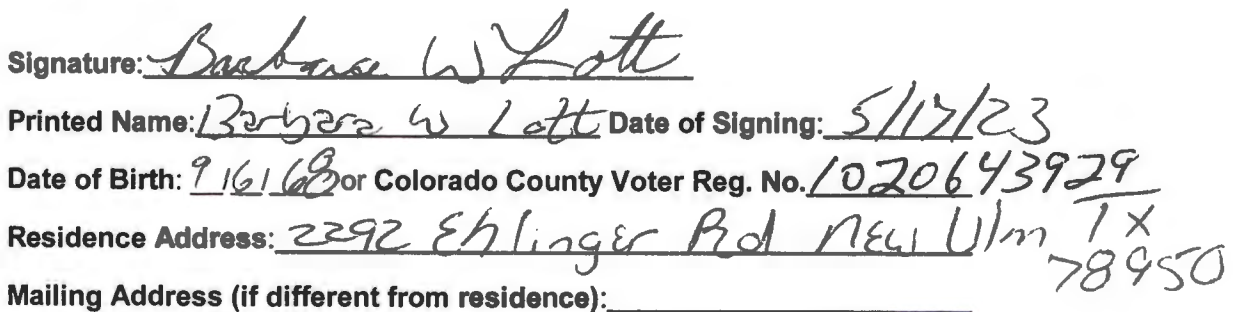 Signature: Barbara W Lott
Printed Name: Barbara W Lott Date of Signing: 5/17/23
Date of Birth: 9/6/68 or Colorado County Voter Reg. No. 1020643929
Residence Address: 2292 Ehlinger Rd New Ulm TX
78950
Mailing Address (if different from residence):